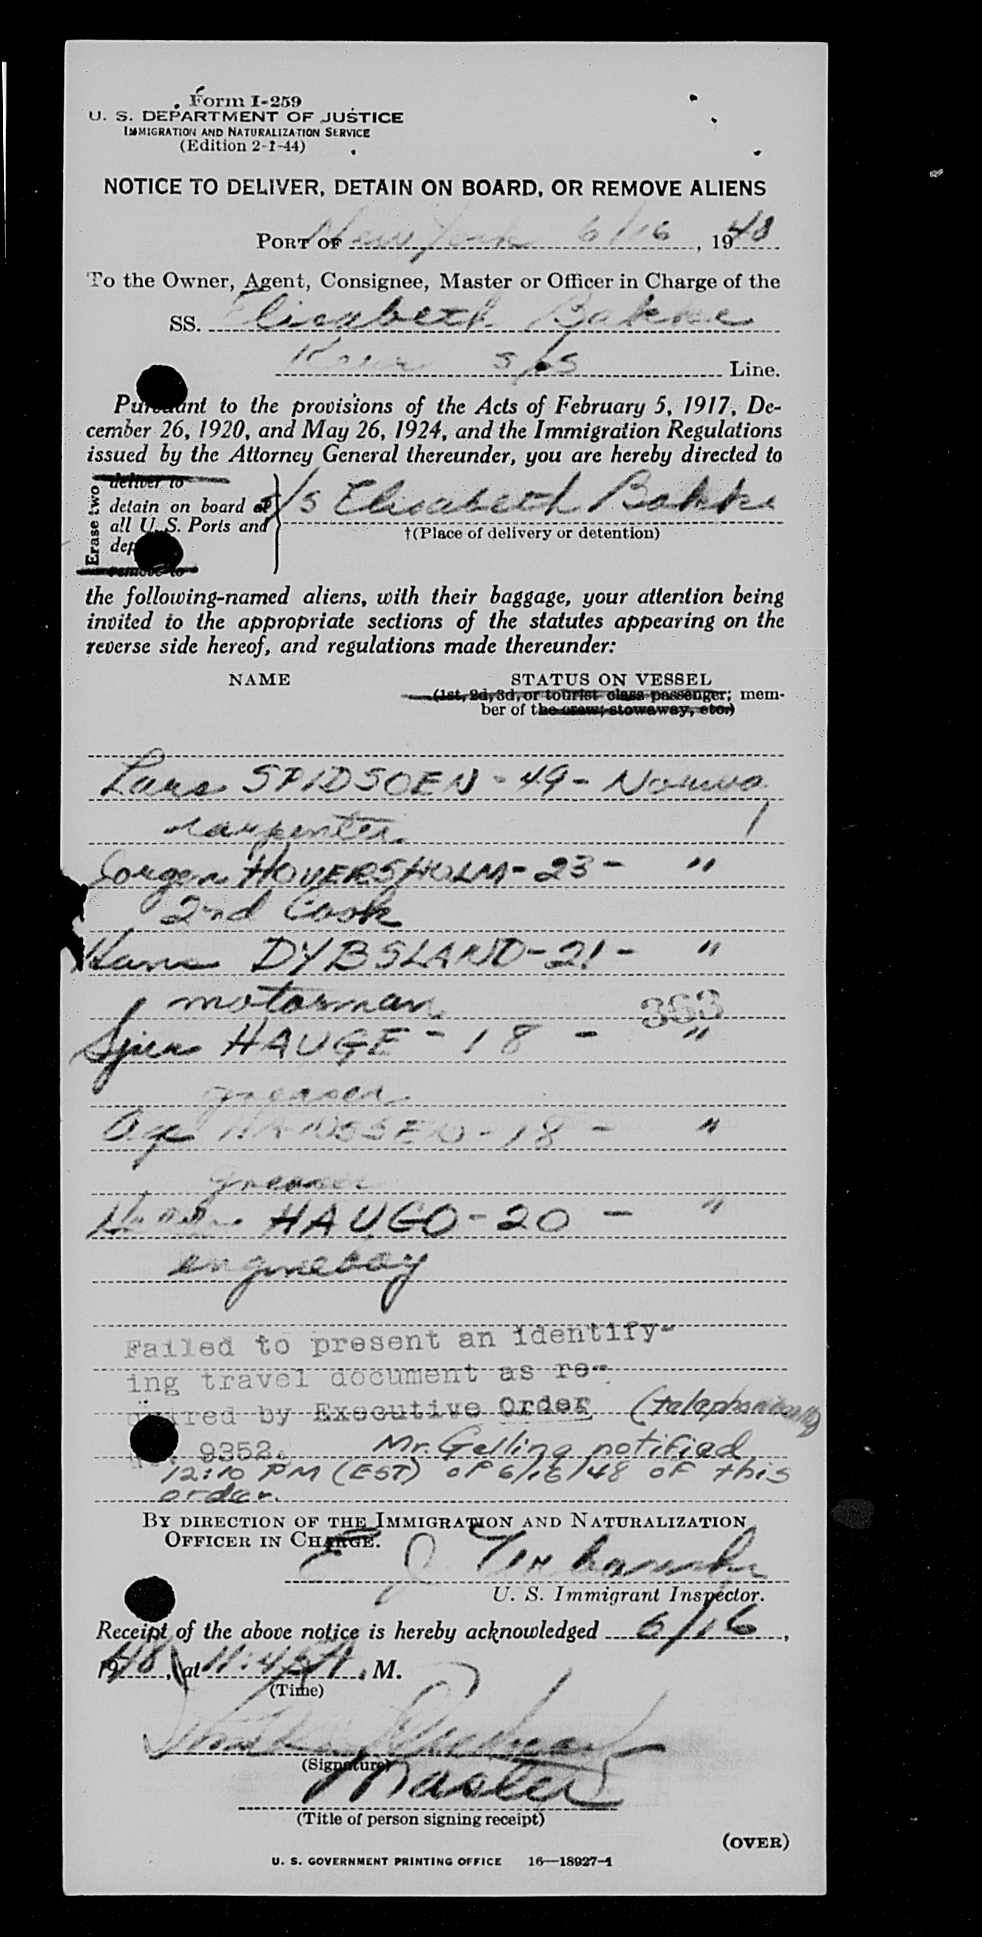 Form I-259
U. S. DEPARTMENT OF JUSTICE
IMMIGRATION AND NATURALIZATION SERVICE
(Edition 2-1-44)
NOTICE TO DELIVER, DETAIN ON BOARD, OR REMOVE ALIENS
PORT OF New York 6/16, 1948
To the Owner, Agent, Consignee, Master or Officer in Charge of the
SS. Elisabeth Bakke
S/S Line.
Pursuant to the provisions of the Acts of February 5, 1917, De-
cember 26, 1920, and May 26, 1924, and the Immigration Regulations
issued by the Attorney General thereunder, you are hereby directed to
Erase two
deliver to
detain on board at S/S Elisabeth Bakke
all U. S. Ports and
†(Place of delivery or detention)
remove to
the following-named aliens, with their baggage, your attention being
invited to the appropriate sections of the statutes appearing on the
reverse side hereof, and regulations made thereunder:
NAME STATUS ON VESSEL
(1st, 2d, 3d, or tourist class passenger; mem-
ber of the crew; stowaway, etc.)
Lars SPIDSOEN - 49 - Norway
carpenter
HOVERSHOLM - 23 - "
2nd Cook
Hans DYBSLAND - 21 - "
motorman
363
HAUGE - 18 - "
greaser
HANSSEN - 18 - "
greaser
HAUGO - 20 - "
engineboy
Failed to present an identify-
ing travel document as re-
quired by Executive Order (telephonically)
No. 9352. Mr. Gelling notified
12:10 PM (EST) of 6/16/48 of this
order.
BY DIRECTION OF THE IMMIGRATION AND NATURALIZATION
OFFICER IN CHARGE.
E J
U. S. Immigrant Inspector.
Receipt of the above notice is hereby acknowledged 6/16,
1948, at 11:45 A. M.
(Time)
(Signature)
Master
(Title of person signing receipt)
(OVER)
U. S. GOVERNMENT PRINTING OFFICE 16—18927-1